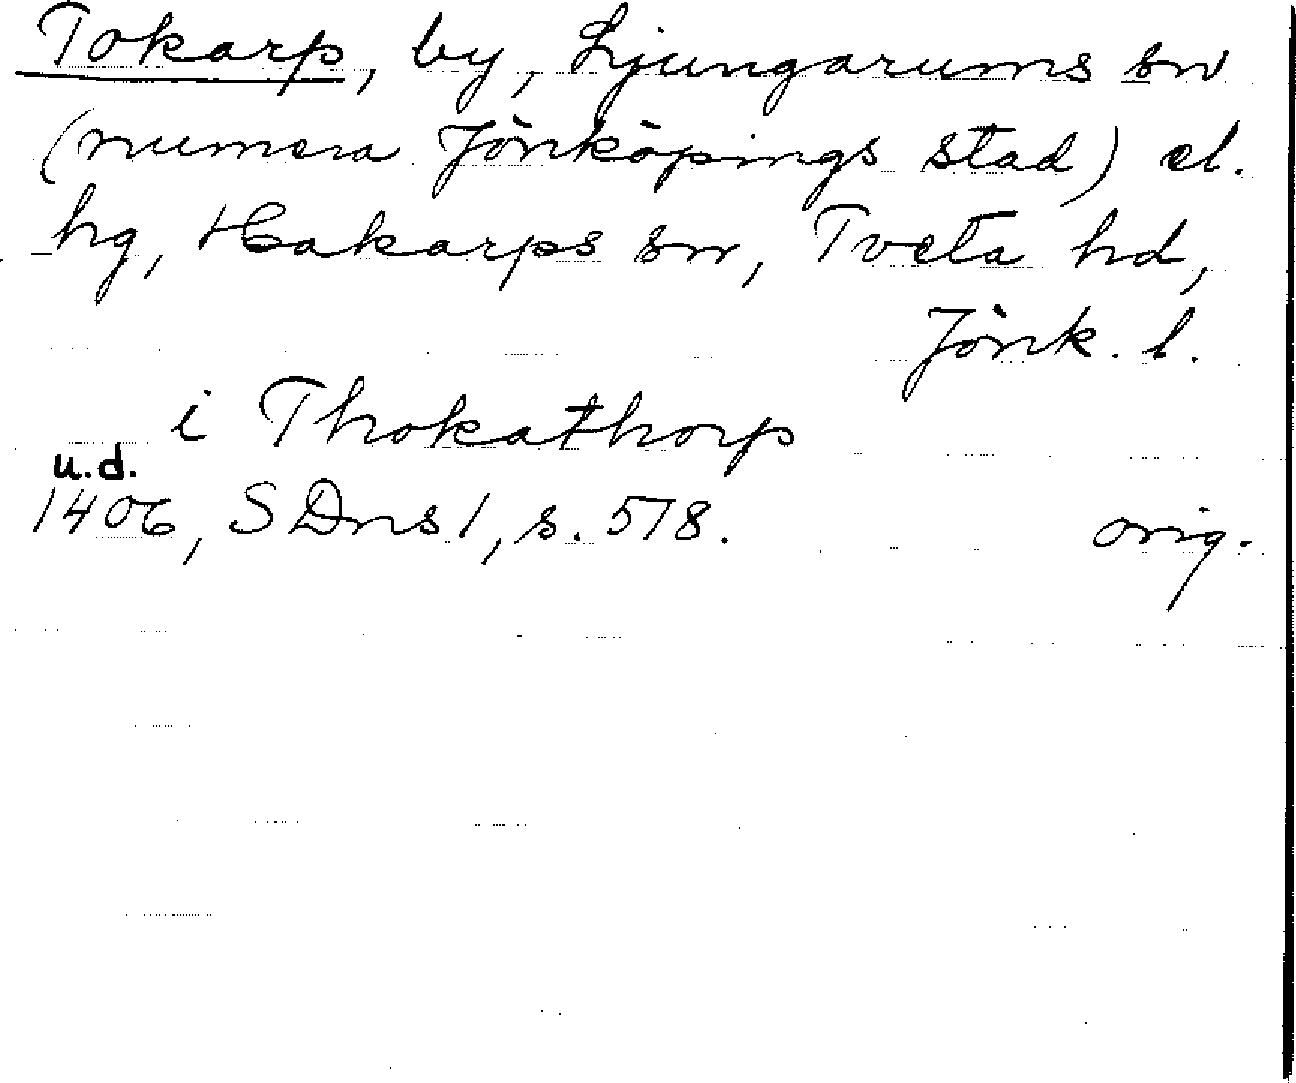 Tokarp, by, Ljungarums sn
(numera Jönköpings stad) el.
hg, Hakarps sn, Tveta hd,
Jönk. l.
i Thokathorp
u.d.
1406, SDns 1, s. 578.
orig.